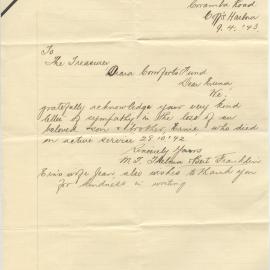 Coramba Road
Coffs Harbour
9.4.'43.
To
The Treasurer
Urara Comforts Fund
Dear Edna
We,
gratefully acknowledge your very kind
letter of sympathy in the loss of our
beloved son & brother, Ernie who died
on active service 28.10.42
Sincerely Yours
M. J. Thelma & Bert Franklin
Ern's wife Jean, also wishes to thank you
for kindness in writing